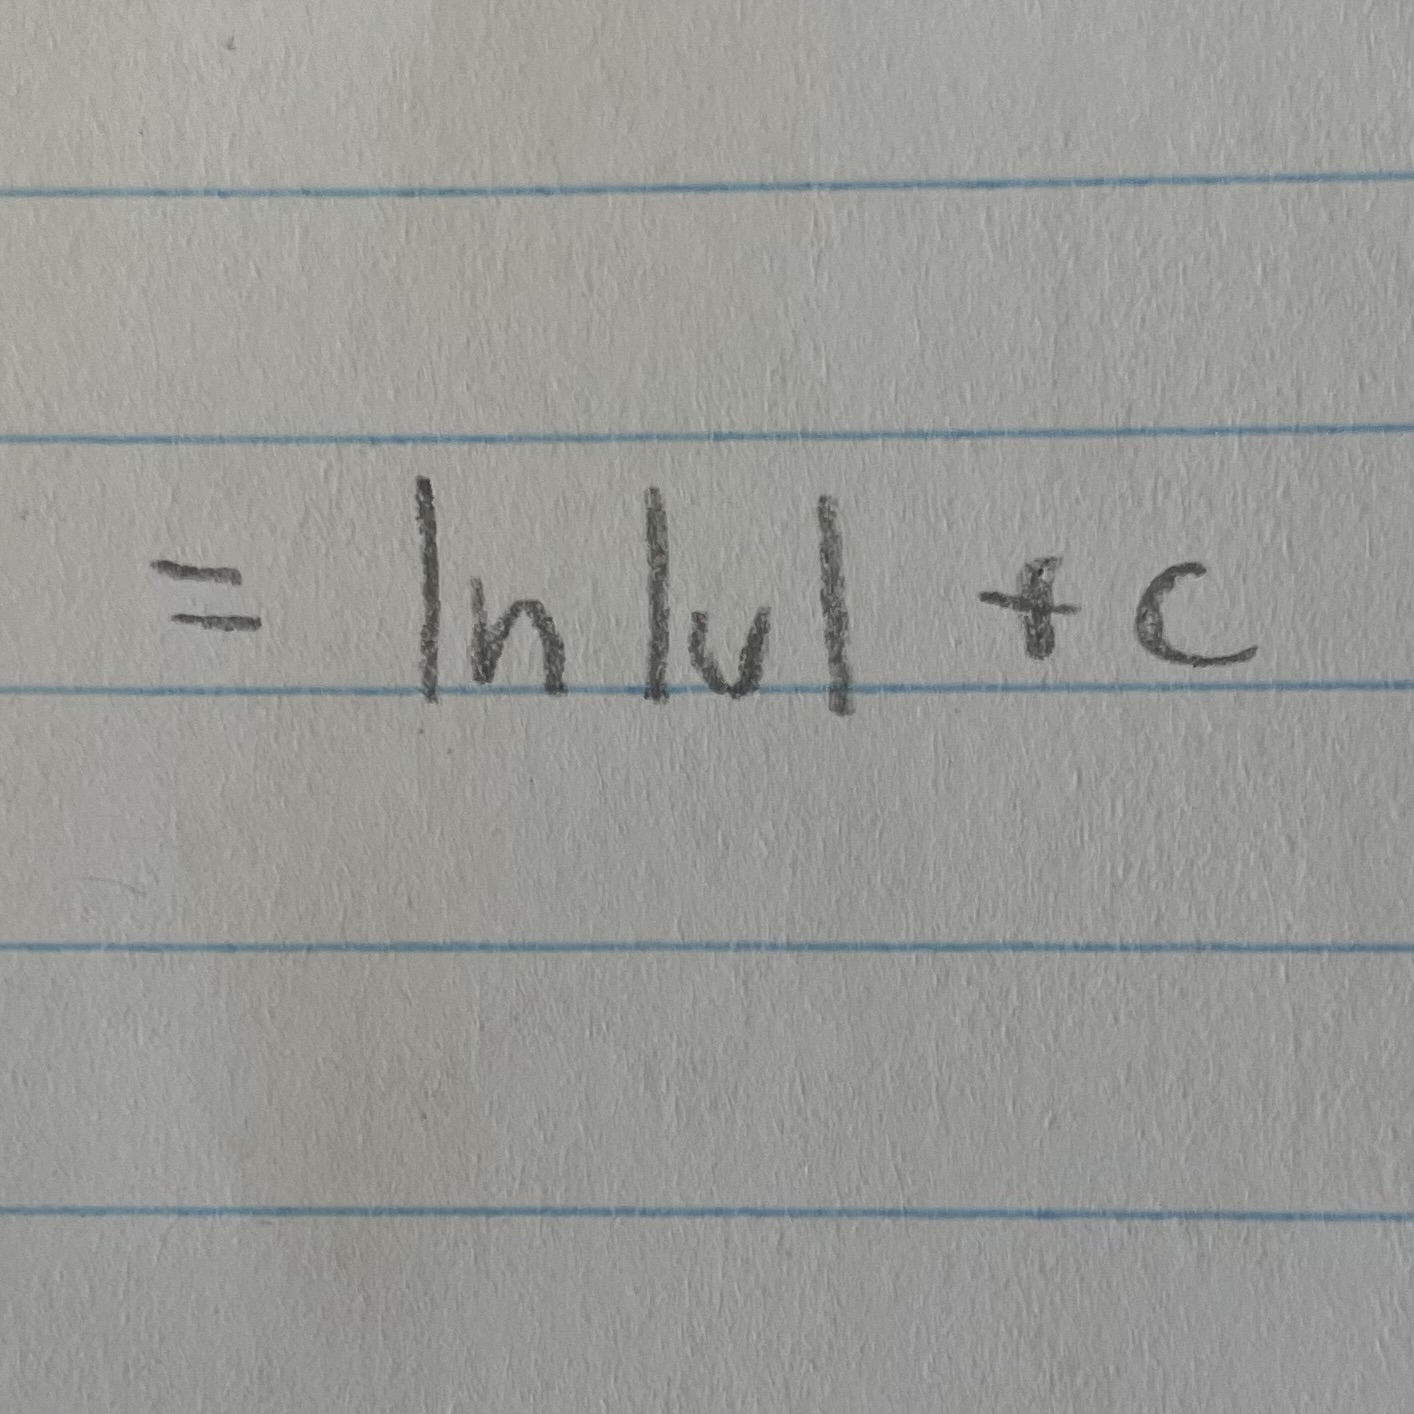 = ln |v| + c